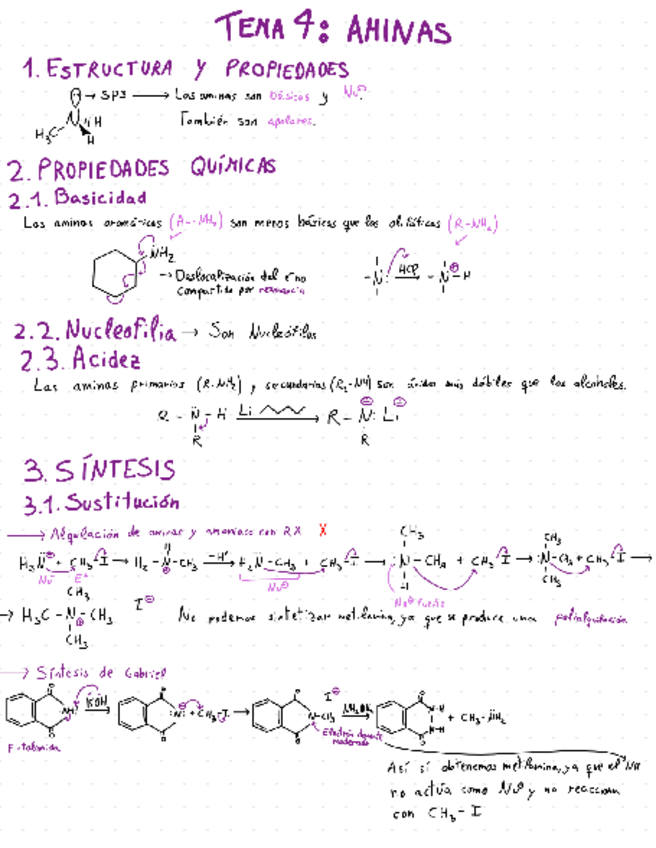 TEMA 4: AMINAS
1. ESTRUCTURA Y PROPIEDADES
→ SP3 → Las aminas son básicas y Nu⊖.
H₃C N H H
También son apolares.
2. PROPIEDADES QUÍMICAS
2.1. Basicidad
Las aminas aromáticas (Ar-NH₂) son menos básicas que las alifáticas (R-NH₂)
NH₂
→ Deslocalización del e⁻ no
compartido por resonancia
-N: HCl -N⊕-H
2.2. Nucleofilia → Son Nucleófilos
2.3. Acidez
Las aminas primarias (R-NH₂) y secundarias (R₂-NH) son ácidos más débiles que los alcoholes.
R - N - H Li → R - N: Li
R R
3. SÍNTESIS
3.1. Sustitución
→ Alquilación de aminas y amoniaco con RX X
CH₃ CH₃
H₃N + CH₃-I → H₂-N-CH₃ -H⁺→ H₂N-CH₃ + CH₃-I → :N-CH₃ + CH₃-I → :N-CH₃ + CH₃-I →
Nu E⁺ Nu⊖ H CH₃
CH₃ Nu⊖ fuerte
→ H₃C - N - CH₃ I⊖ No podemos sintetizar metilamina, ya que se produce una polialquilación
CH₃
→ Síntesis de Gabriel
NH KOH N: + CH₃-I → N-CH₃ I⊖ NH₂NH₂ N-H N-H + CH₃-NH₂
Ftalamida
Así sí obtenemos metilamina, ya que el NH
no actúa como Nu⊖ y no reacciona
con CH₃-I